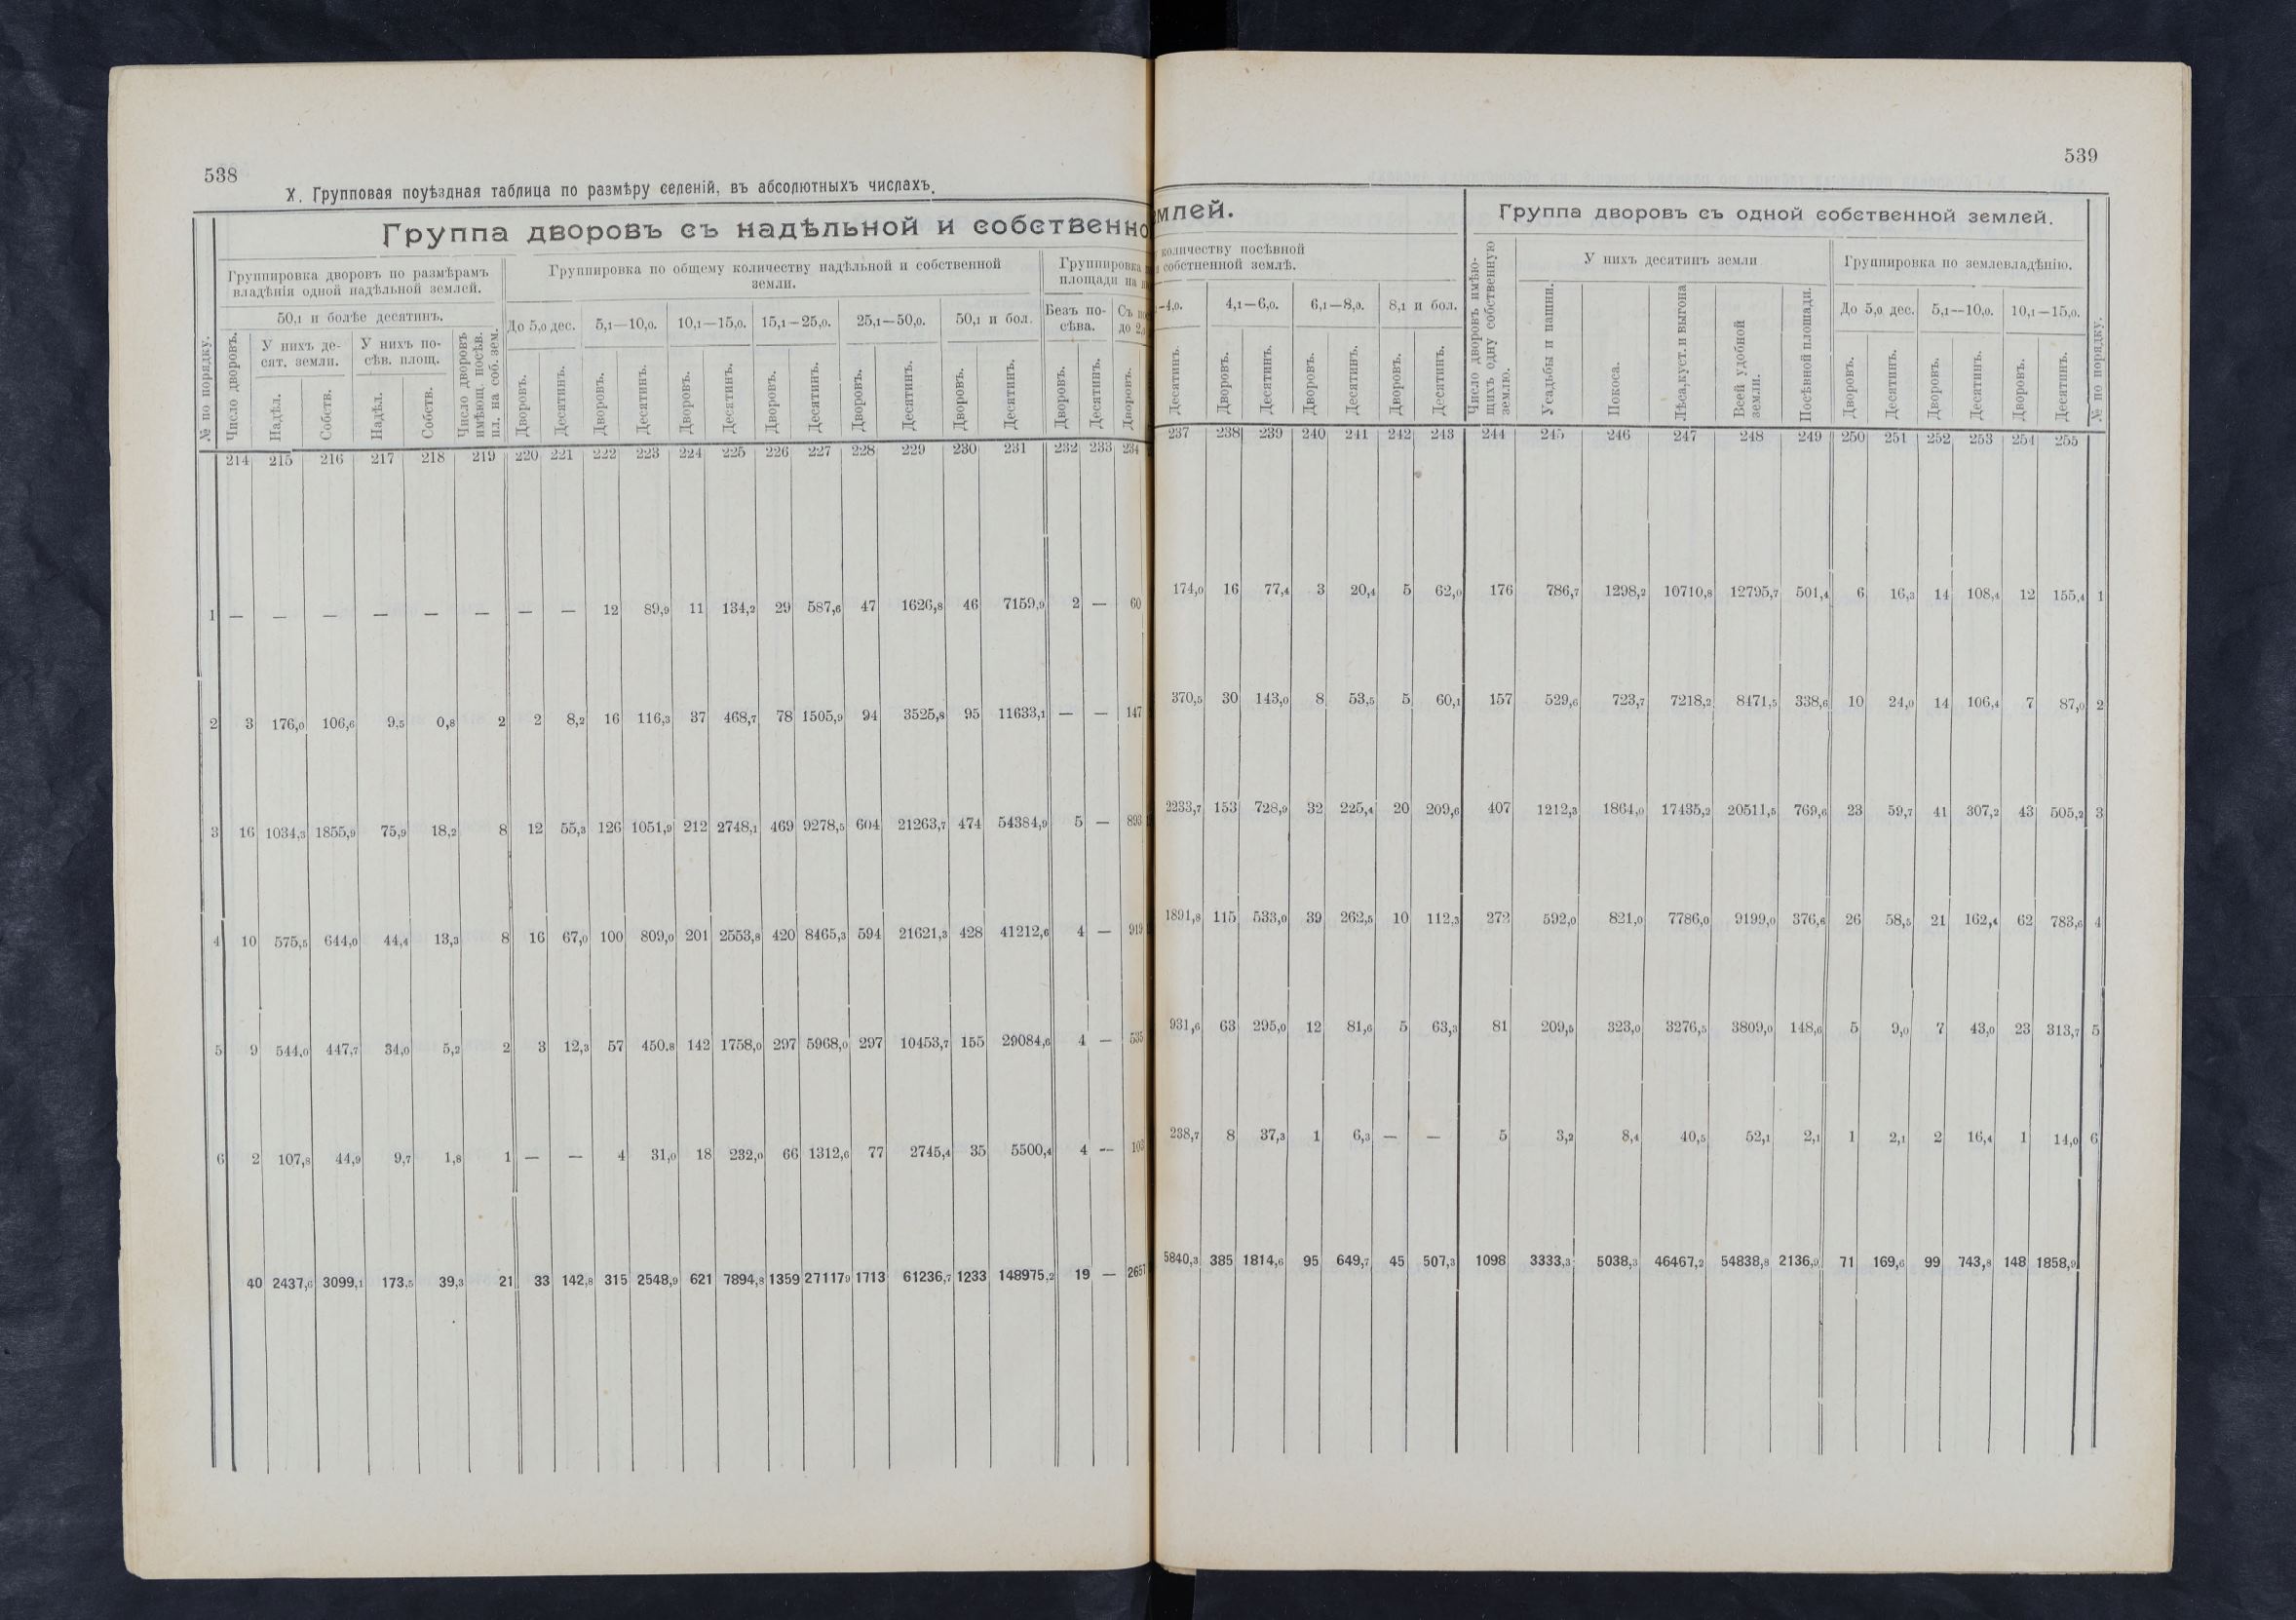 538
X. Групповая поуѣздная таблица по размѣру селеній, въ абсолютныхъ числахъ.
Группа дворовъ съ надѣльной и собственно
Группировка дворовъ по размѣрамъ владѣнія одной надѣльной землей.
Группировка по общему количеству надѣльной и собственной земли.
Группировка
площади на
50,1 и болѣе десятинъ.
До 5,0 дес. 5,1—10,0. 10,1—15,0. 15,1—25,0. 25,1—50,0. 50,1 и бол. Безъ посѣва.
№ по порядку. Число дворовъ. У нихъ десят. земли. У нихъ посѣв. площ. Число дворовъ имѣющ. посѣв. пл. на соб. зем.
Надѣл. Собств. Надѣл. Собств. Дворовъ. Десятинъ. Дворовъ. Десятинъ. Дворовъ. Десятинъ. Дворовъ. Десятинъ. Дворовъ. Десятинъ. Дворовъ. Десятинъ. Дворовъ. Десятинъ. Дворовъ.
214 215 216 217 218 219 220 221 222 223 224 225 226 227 228 229 230 231 232 233 234
1 — — — — — — — — 12 89,9 11 134,2 29 587,6 47 1626,8 46 7159,9 2 — 60
2 3 176,0 106,6 9,5 0,8 2 2 8,2 16 116,3 37 468,7 78 1505,9 94 3525,8 95 11633,1 — — 147
3 16 1034,3 1855,9 75,9 18,2 8 12 55,3 126 1051,9 212 2748,1 469 9278,5 604 21263,7 474 54384,9 5 — 893
4 10 575,5 644,0 44,4 13,3 8 16 67,0 100 809,0 201 2553,8 420 8465,3 594 21621,3 428 41212,6 4 — 919
5 9 544,0 447,7 34,0 5,2 2 3 12,3 57 450,8 142 1758,0 297 5968,0 297 10453,7 155 29084,6 4 — 535
6 2 107,8 44,9 9,7 1,8 1 — — 4 31,0 18 232,0 66 1312,6 77 2745,4 35 5500,4 4 — 103
40 2437,6 3099,1 173,5 39,3 21 33 142,8 315 2548,9 621 7894,8 1359 27117,9 1713 61236,7 1233 148975,2 19 — 2657
539
млей.
Группа дворовъ съ одной собственной землей.
количеству посѣвной
собственной землѣ.
Число дворовъ имѣющихъ одну собственную землю.
У нихъ десятинъ земли
Группировка по землевладѣнію.
—4,0. 4,1—6,0. 6,1—8,0. 8,1 и бол.
До 5,0 дес. 5,1—10,0. 10,1—15,0.
Десятинъ. Дворовъ. Десятинъ. Дворовъ. Десятинъ. Дворовъ. Десятинъ. Усадьбы и пашни. Покоса. Лѣса, куст. и выгона Всей удобной земли. Посѣвной площади. Дворовъ. Десятинъ. Дворовъ. Десятинъ. Дворовъ. Десятинъ. № по порядку.
237 238 239 240 241 242 243 244 245 246 247 248 249 250 251 252 253 254 255
174,0 16 77,4 3 20,4 5 62,0 176 786,7 1298,2 10710,8 12795,7 501,4 6 16,3 14 108,4 12 155,4 1
370,5 30 143,0 8 53,5 5 60,1 157 529,6 723,7 7218,2 8471,5 338,6 10 24,0 14 106,4 7 87,0 2
2233,7 153 728,9 32 225,4 20 209,6 407 1212,3 1864,0 17435,2 20511,5 769,6 23 59,7 41 307,2 43 505,2 3
1891,8 115 533,0 39 262,5 10 112,3 272 592,0 821,0 7786,0 9199,0 376,6 26 58,5 21 162,4 62 783,6 4
931,6 63 295,0 12 81,6 5 63,3 81 209,5 323,0 3276,5 3809,0 148,6 5 9,0 7 43,0 23 313,7 5
238,7 8 37,3 1 6,3 — — 5 3,2 8,4 40,5 52,1 2,1 1 2,1 2 16,4 1 14,0 6
5840,3 385 1814,6 95 649,7 45 507,3 1098 3333,3 5038,3 46467,2 54838,8 2136,9 71 169,6 99 743,8 148 1858,9